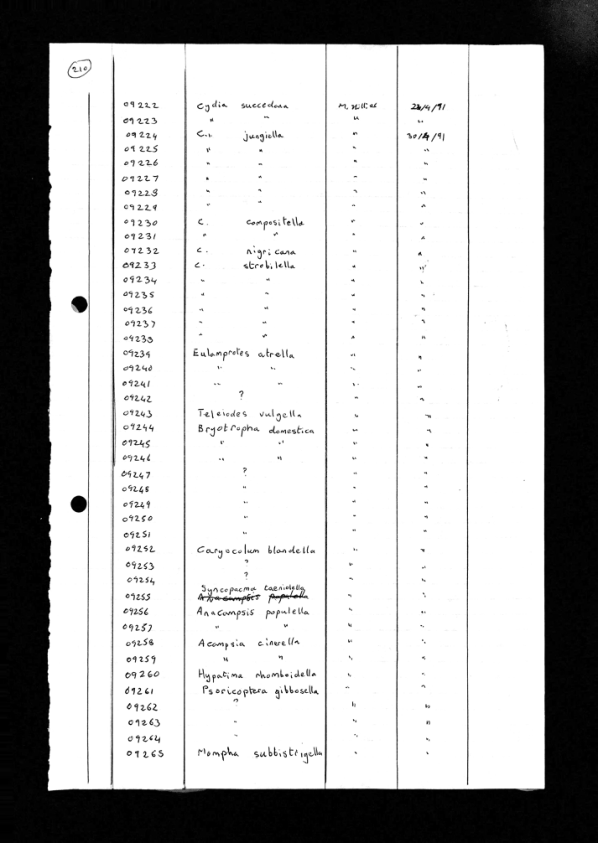 210
09222 Cydia succedana M. Hillier 28/4/91
09223 " " " "
09224 C. jungiella " 30/4/91
09225 " " " "
09226 " " " "
09227 " " " "
09228 " " " "
09229 " " " "
09230 C. compositella " "
09231 " " " "
09232 C. nigricana " "
09233 C. strobilella " "
09234 " " " "
09235 " " " "
09236 " " " "
09237 " " " "
09238 " " " "
09239 Eulamprotes atrella " "
09240 " " " "
09241 " " " "
09242 ? " "
09243 Teleiodes vulgella " "
09244 Bryotropha domestica " "
09245 " " " "
09246 " " " "
09247 ? " "
09248 " " "
09249 " " "
09250 " " "
09251 " " "
09252 Caryocolum blandella " "
09253 ? " "
09254 ? " "
Syncopacma taeniolella
09255 Anacampsis populella " "
09256 Anacampsis populella " "
09257 " " " "
09258 Acompsia cinerella " "
09259 " " " "
09260 Hypatima rhomboidella " "
09261 Psoricoptera gibbosella " "
09262 ? " "
09263 " " "
09264 " " "
09265 Mompha subbistrigella " "